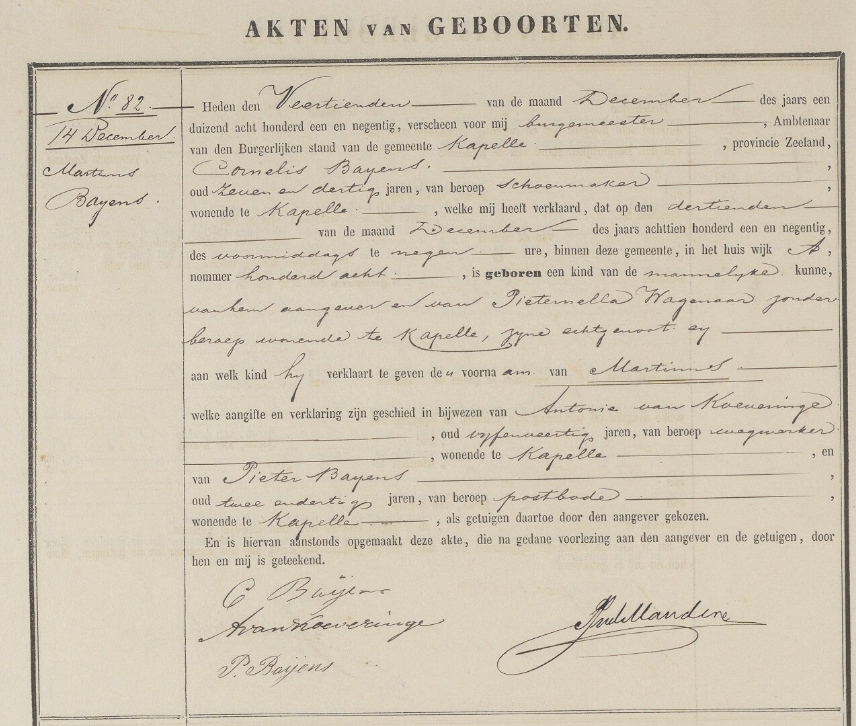 AKTEN VAN GEBOORTEN.
N.º 82.
14 December
Martinus
Bayens.
Heden den Veertienden van de maand December des jaars een
duizend acht honderd een en negentig, verscheen voor mij burgemeester, Ambtenaar
van den Burgerlijken stand van de gemeente Kapelle, provincie Zeeland,
Cornelis Bayens.,
oud zeven en dertig jaren, van beroep schoenmaker,
wonende te Kapelle, welke mij heeft verklaard, dat op den dertienden
van de maand December des jaars achttien honderd een en negentig,
des voormiddags te negen ure, binnen deze gemeente, in het huis wijk A,
nommer honderd acht, is geboren een kind van de mannelyke kunne,
van hem aangever en van Pieternella Wagenaar zonder
beroep wonende te Kapelle, zyne echtgenoot
aan welk kind hy verklaart te geven de n voorna am van Martinus
welke aangifte en verklaring zijn geschied in bijwezen van Antonie van Koeveringe
, oud vyfenveertig jaren, van beroep wegwerker
, wonende te Kapelle, en
van Pieter Bayens,
oud twee en dertig jaren, van beroep postbode,
wonende te Kapelle, als getuigen daartoe door den aangever gekozen.
En is hiervan aanstonds opgemaakt deze akte, die na gedane voorlezing aan den aangever en de getuigen, door
hen en mij is geteekend.
C Baijens
A van Koeveringe
P. Baijens